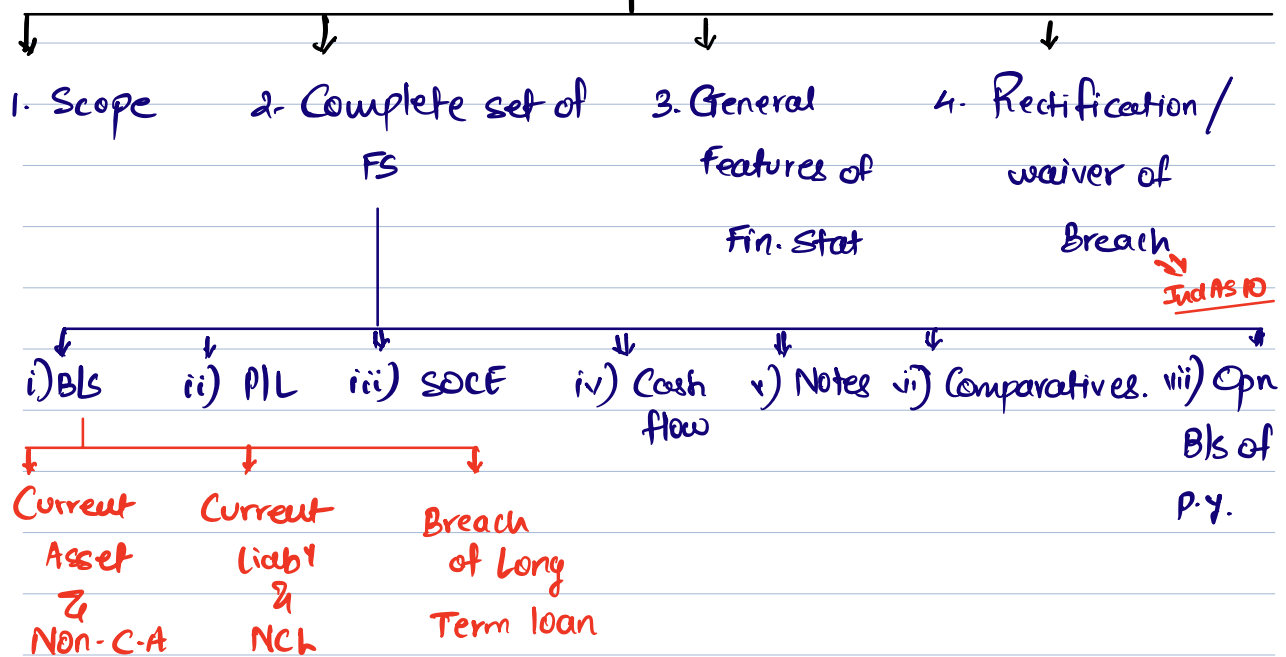 1. Scope
2- Complete set of
FS
3. General
Features of
Fin. Stat
4. Rectification/
waiver of
Breach
Ind AS 10
i) B/S
ii) P/L
iii) SOCE
iv) Cash
flow
v) Notes
vi) Comparatives.
vii) Opn
B/s of
P.y.
Current
Asset
&
Non-C-A
Current
Liaby
&
NCL
Breach
of Long
Term loan